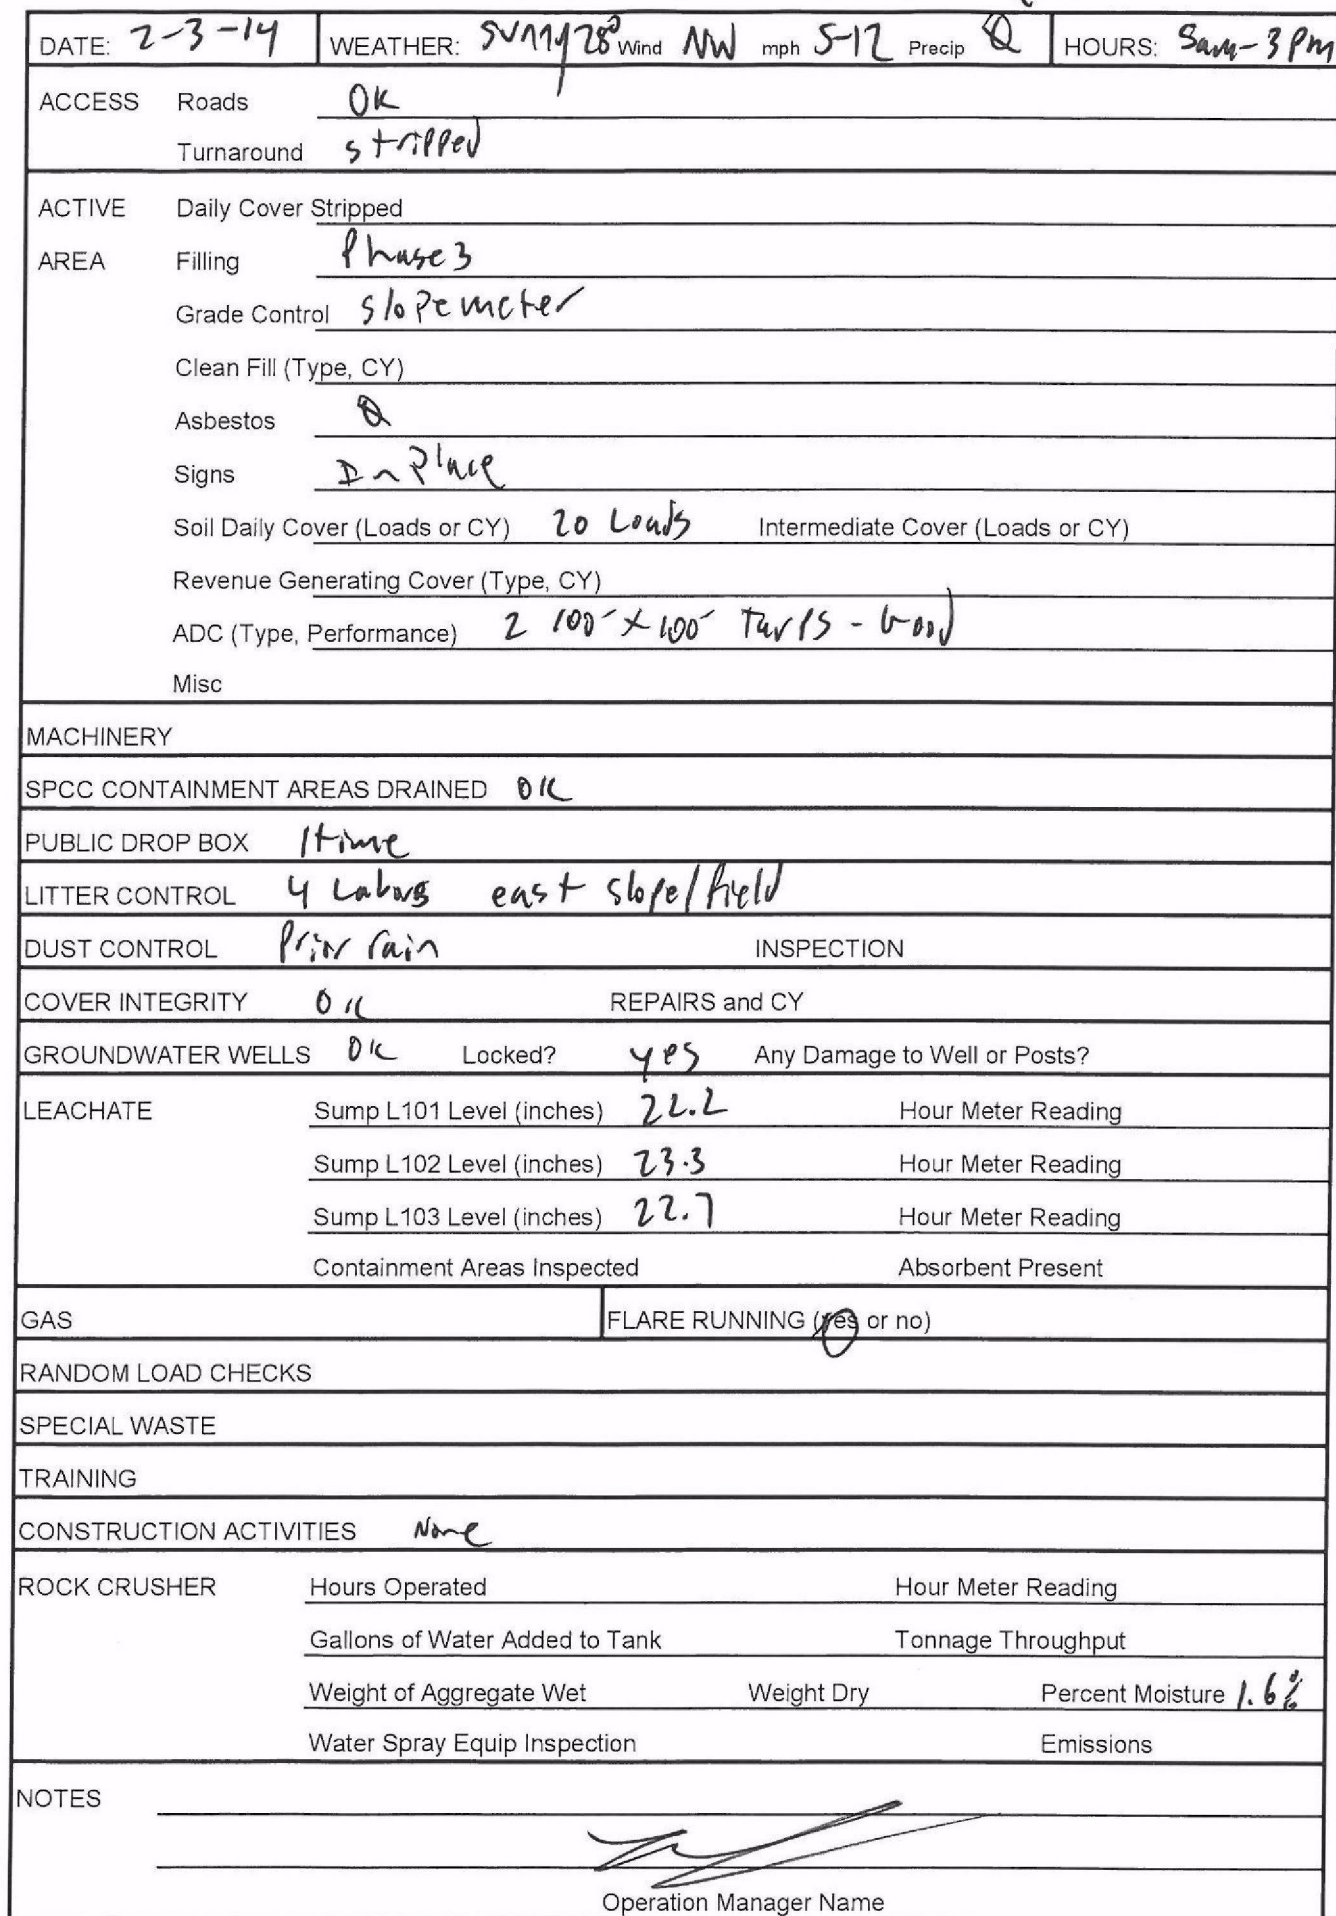 DATE: 2-3-14 WEATHER: Sunny 28° Wind NW mph 5-12 Precip Ø HOURS: 5am-3pm
ACCESS Roads OK
Turnaround stripped
ACTIVE Daily Cover Stripped
AREA Filling Phase 3
Grade Control slope meter
Clean Fill (Type, CY)
Asbestos Ø
Signs In Place
Soil Daily Cover (Loads or CY) 20 Loads Intermediate Cover (Loads or CY)
Revenue Generating Cover (Type, CY)
ADC (Type, Performance) 2 100' x 100' Tarps - Good
Misc
MACHINERY
SPCC CONTAINMENT AREAS DRAINED OK
PUBLIC DROP BOX 1 time
LITTER CONTROL 4 Labors east slope/field
DUST CONTROL Prior rain INSPECTION
COVER INTEGRITY OK REPAIRS and CY
GROUNDWATER WELLS OK Locked? yes Any Damage to Well or Posts?
LEACHATE Sump L101 Level (inches) 22.2 Hour Meter Reading
Sump L102 Level (inches) 23.3 Hour Meter Reading
Sump L103 Level (inches) 22.7 Hour Meter Reading
Containment Areas Inspected Absorbent Present
GAS FLARE RUNNING (yes or no)
RANDOM LOAD CHECKS
SPECIAL WASTE
TRAINING
CONSTRUCTION ACTIVITIES None
ROCK CRUSHER Hours Operated Hour Meter Reading
Gallons of Water Added to Tank Tonnage Throughput
Weight of Aggregate Wet Weight Dry Percent Moisture 1.6%
Water Spray Equip Inspection Emissions
NOTES
Operation Manager Name